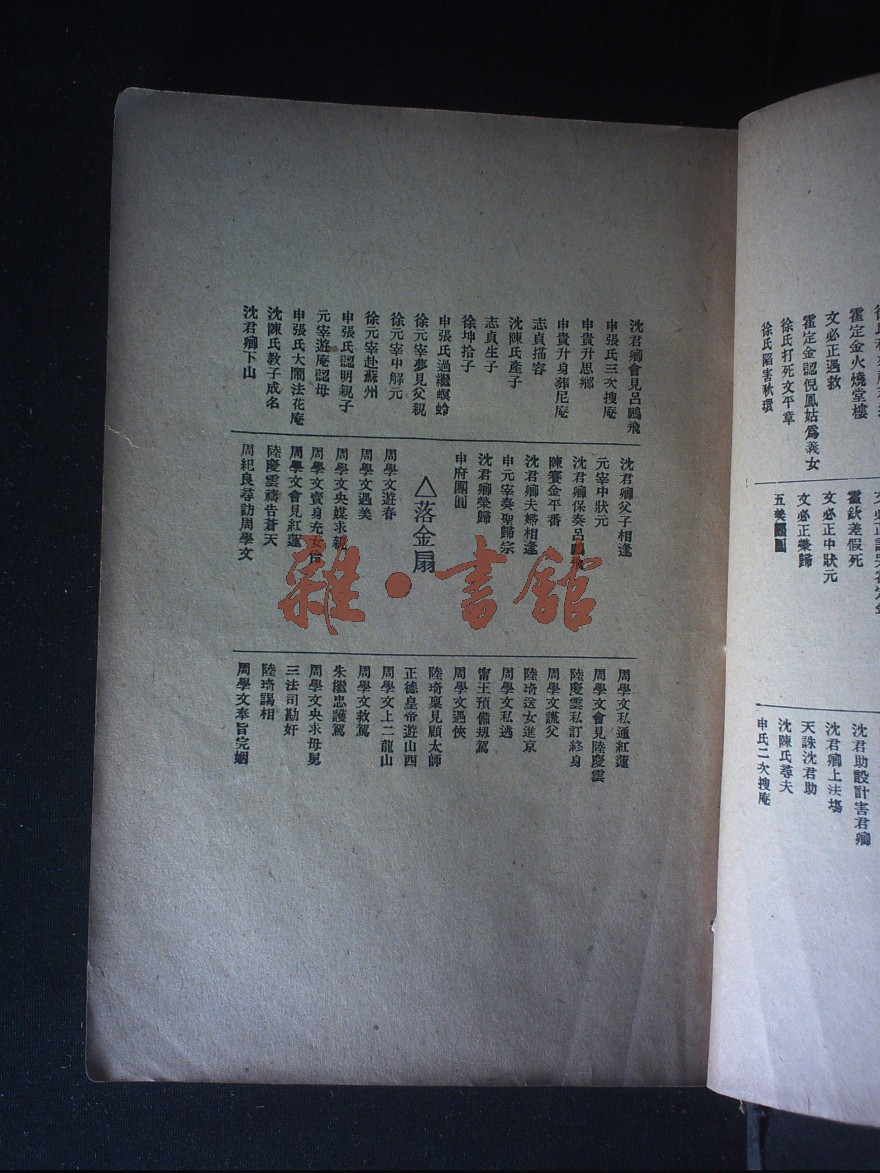 霍定金火燒堂樓
文必正遇救
霍定金認倪鳳姑爲義女
徐氏打死文平章
徐氏陷害秋環
霍欽差假死
文必正中狀元
文必正榮歸
五美團圓
沈君助設計害君卿
沈君卿上法塲
天誅沈君助
沈陳氏尋夫
申氏二次搜庵
沈君卿會見呂鵾飛
申張氏三次搜庵
申貴升思鄉
申貴升身葬尼庵
志貞描容
沈陳氏產子
志貞生子
徐坤拾子
申張氏過繼螟蛉
徐元宰夢見父親
徐元宰中解元
徐元宰赴蘇州
申張氏認明親子
元宰遊庵認母
申張氏大鬧法花庵
沈陳氏敎子成名
沈君卿下山
沈君卿父子相逢
元宰中狀元
沈君卿保奏呂鵾飛
陳賽金平番
沈君卿夫婦相逢
申元宰奏聖歸宗
沈君卿榮歸
申府團圓
△落金扇
周學文遊春
周學文遇美
周學文央媒求親
周學文賣身充女伶
周學文會見紅蓮
陸慶雲禱告蒼天
周紀良尋訪周學文
周學文私通紅蓮
周學文會見陸慶雲
陸慶雲私訂終身
周學文謊父
陸琦送女進京
周學文私逃
甯王預備刼駕
周學文遇俠
陸琦稟見顧太師
正德皇帝遊山西
周學文上二龍山
周學文救駕
朱繼忠護駕
周學文央求母舅
三法司勘奸
陸琦謁相
周學文奉旨完姻
雜·書館